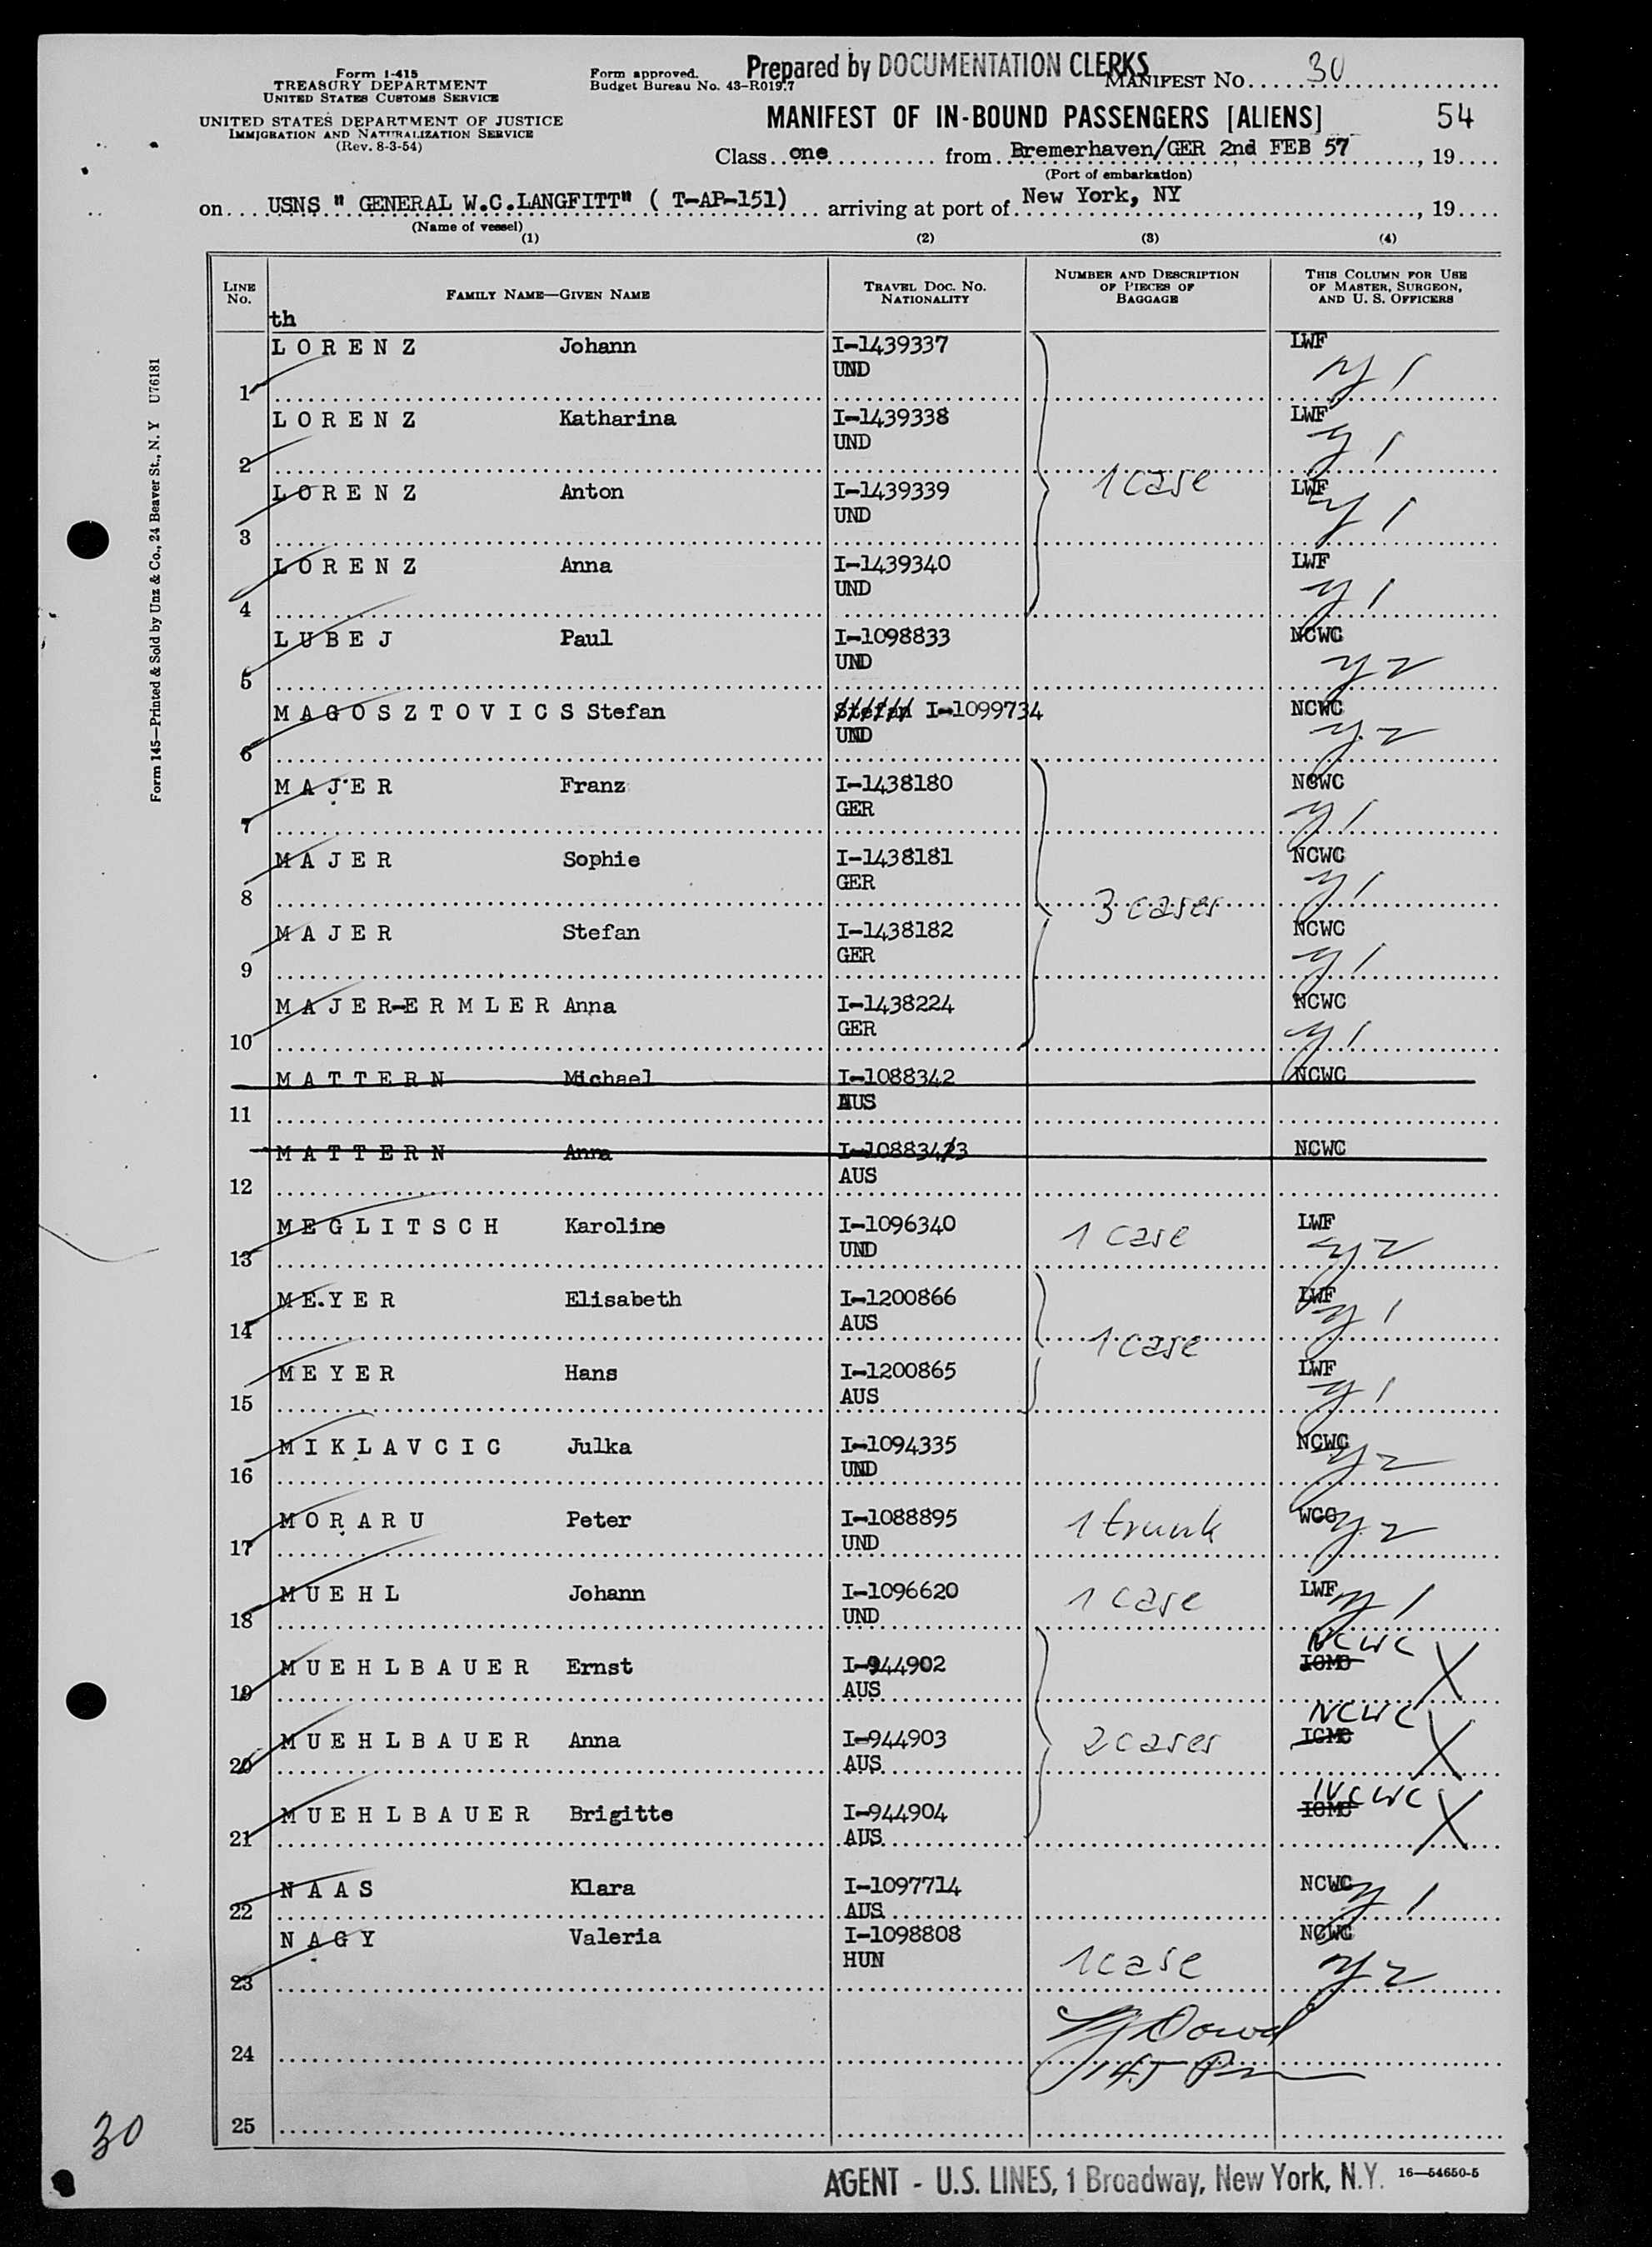 Form I-415
TREASURY DEPARTMENT
UNITED STATES CUSTOMS SERVICE
UNITED STATES DEPARTMENT OF JUSTICE
IMMIGRATION AND NATURALIZATION SERVICE
(Rev. 8-3-54)
Form approved.
Budget Bureau No. 43-R019.7
Prepared by DOCUMENTATION CLERKS
MANIFEST No. 30
MANIFEST OF IN-BOUND PASSENGERS [ALIENS] 54
Class one from Bremerhaven/GER 2nd FEB 57, 19
(Port of embarkation)
on USNS " GENERAL W.C.LANGFITT" ( T-AP-151) arriving at port of New York, NY, 19
(Name of vessel)
(1) (2) (3) (4)
LINE No. FAMILY NAME—GIVEN NAME TRAVEL DOC. NO. NATIONALITY NUMBER AND DESCRIPTION OF PIECES OF BAGGAGE THIS COLUMN FOR USE OF MASTER, SURGEON, AND U. S. OFFICERS
th
1 L O R E N Z Johann I-1439337 UND LWF y 1
2 L O R E N Z Katharina I-1439338 UND LWF y 1
3 L O R E N Z Anton I-1439339 UND 1 case LWF y 1
4 L O R E N Z Anna I-1439340 UND LWF y 1
5 L U B E J Paul I-1098833 UND NCWC y 2
6 M A G O S Z T O V I C S Stefan Stefan I-1099734 UND NCWC y 2
7 M A J E R Franz I-1438180 GER NCWC y 1
8 M A J E R Sophie I-1438181 GER 3 cases NCWC y 1
9 M A J E R Stefan I-1438182 GER NCWC y 1
10 M A J E R-E R M L E R Anna I-1438224 GER NCWC y 1
11 M A T T E R N Michael I-1088342 AUS NCWC
12 M A T T E R N Anna I-1088343 AUS NCWC
13 M E G L I T S C H Karoline I-1096340 UND 1 case LWF y 2
14 M E Y E R Elisabeth I-1200866 AUS 1 case LWF y 1
15 M E Y E R Hans I-1200865 AUS LWF y 1
16 M I K L A V C I C Julka I-1094335 UND NCWC y 2
17 M O R A R U Peter I-1088895 UND 1 trunk WCC y 2
18 M U E H L Johann I-1096620 UND 1 case LWF y 1
19 M U E H L B A U E R Ernst I-944902 AUS NCWC ICMC X
20 M U E H L B A U E R Anna I-944903 AUS 2 cases NCWC ICMC X
21 M U E H L B A U E R Brigitte I-944904 AUS NCWC ICMC X
22 N A A S Klara I-1097714 AUS NCWC y 1
23 N A G Y Valeria I-1098808 HUN 1 case NCWC y 2
24
25
30
AGENT - U.S. LINES, 1 Broadway, New York, N.Y. 16—54650-5
Form 145—Printed & Sold by Unz & Co., 24 Beaver St., N. Y U76181